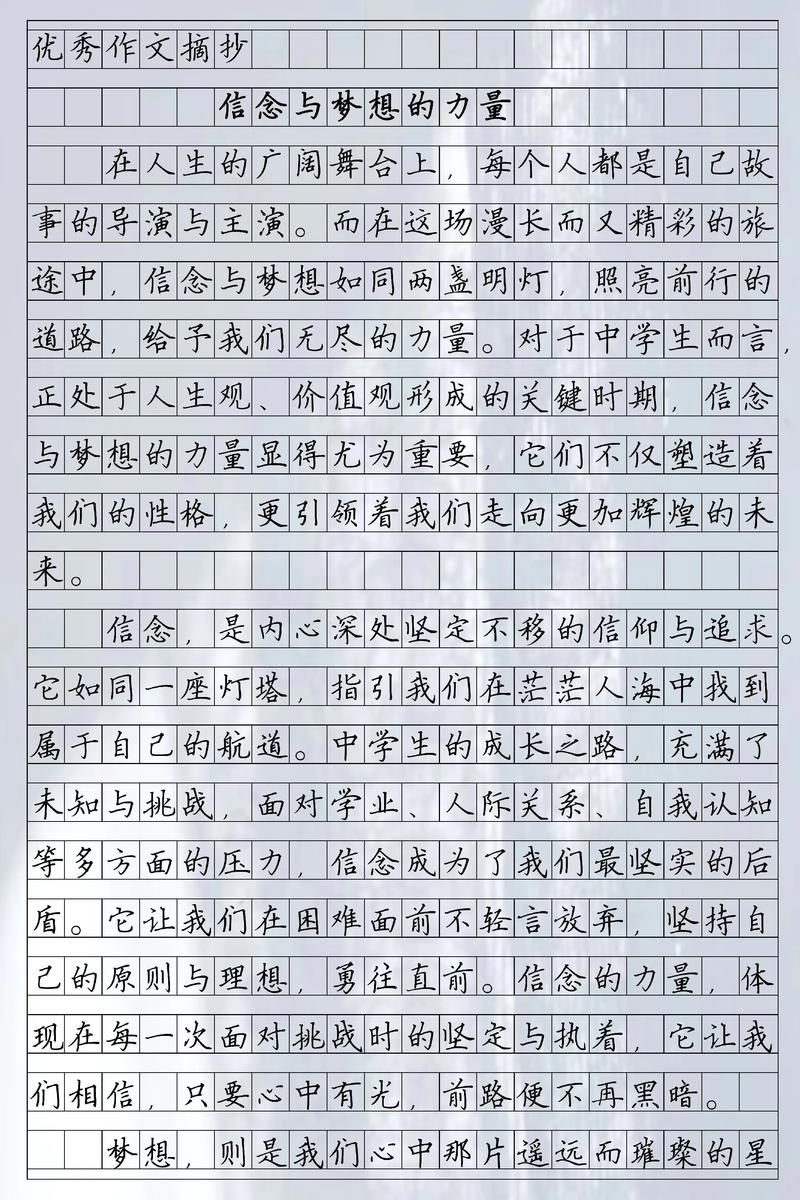 优秀作文摘抄
信念与梦想的力量
在人生的广阔舞台上，每个人都是自己故
事的导演与主演。而在这场漫长而又精彩的旅
途中，信念与梦想如同两盏明灯，照亮前行的
道路，给予我们无尽的力量。对于中学生而言，
正处于人生观、价值观形成的关键时期，信念
与梦想的力量显得尤为重要，它们不仅塑造着
我们的性格，更引领着我们走向更加辉煌的未
来。
信念，是内心深处坚定不移的信仰与追求。
它如同一座灯塔，指引我们在茫茫人海中找到
属于自己的航道。中学生的成长之路，充满了
未知与挑战，面对学业、人际关系、自我认知
等多方面的压力，信念成为了我们最坚实的后
盾。它让我们在困难面前不轻言放弃，坚持自
己的原则与理想，勇往直前。信念的力量，体
现在每一次面对挑战时的坚定与执着，它让我
们相信，只要心中有光，前路便不再黑暗。
梦想，则是我们心中那片遥远而璀璨的星